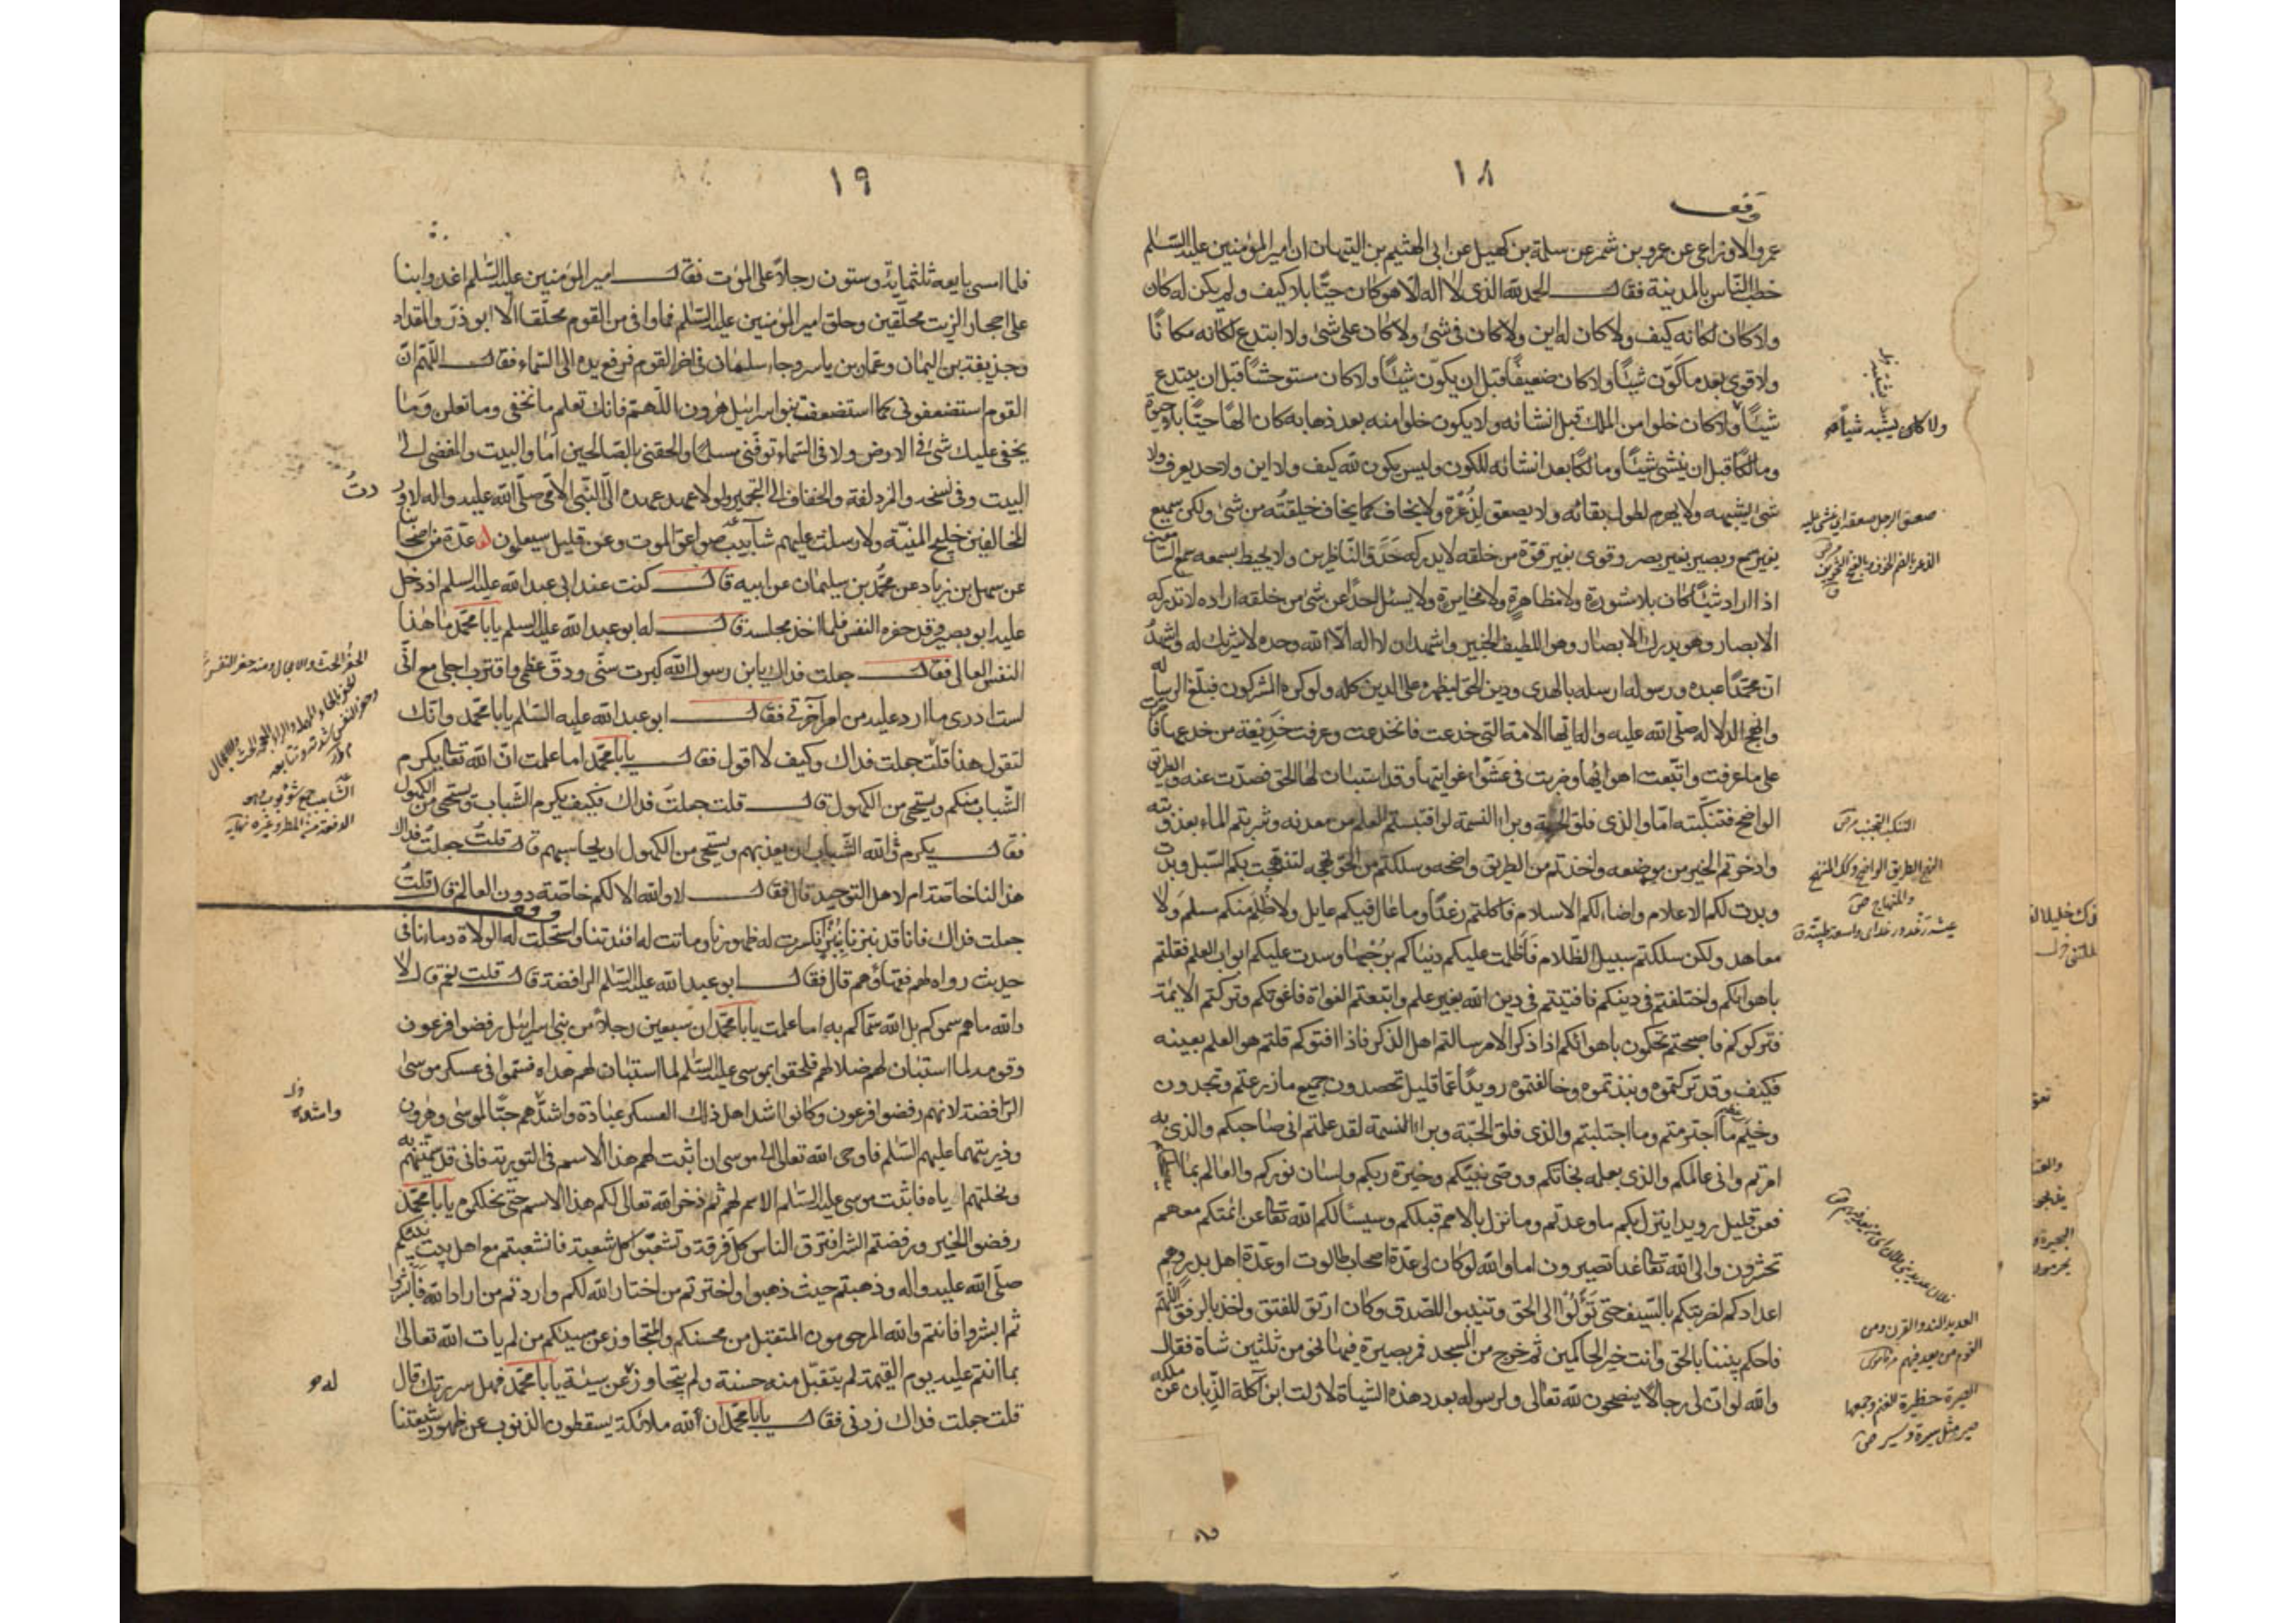 ١٨
وقف
عمرو الاوزاعى عن عمرو بن شمر عن سلمة بن كهيل عن ابى الهثيم بن التيهان ان امير المؤمنين عليه السّلم
خطب النّاس بالمدينة فقال الحمد لله الذى لا اله الّا هو كان حيّا بلا كيف ولم يكن له كان
ولا كان لكانه كيف ولا كان له اين ولا كان فى شئ ولا كان على شئ ولا ابتدع لكانه مكانًا
ولا قوى بعد ما كوّن شيئًا ولا كان ضعيفًا قبل ان يكوّن شيئًا ولا كان مستوحشًا قبل ان يبتدع
شيئًا ولا كان خلوا من الملك قبل انشائه ولا يكون خلوا منه بعد ذهابه كان الهًا حيّا بلا حيوة
ومالكًا قبل ان ينشئ شيئًا ومالكًا بعد انشائه للكون وليس يكون لله كيف ولا اين ولا حد يعرف ولا
شئ يشبهه ولا يهرم لطول بقائه ولا يصعق لِذُعْرَة ولا يخاف كما يخاف خليقتُه من شئ ولكن سميع
بغير سمع وبصير بغير بصر وقوى بغير قوّة من خلقه لا يدركه حَدَق النّاظرين ولا يحيط بسمعه سمع السّامعين
اذا اراد شيئًا كان بلا مشورة ولا مظاهرة ولا مخابرة ولا يسئل احدًا عن شئ من خلقه اراده لا تدركه
الابصار وهو يدرك الابصار وهو اللطيف الخبير واشهد ان لا اله الّا الله وحده لا شريك له واشهدُ
انّ محمّدًا عبده ورسوله ارسله بالهدى ودين الحق ليظهره على الدين كله ولو كره المشركون فبلّغ الرسالة
وانهج الدلالة صلّى الله عليه واله ايّها الامة التى خدعت فانخدعت وعرفت خديعة من خدعها فاصرّت
على ما عرفت واتّبعت اهوائها وضربت فى عَشْوا غوايتها وقد استبان لها الحق فصدّت عنه والطريق
الواضح فتنكّبته امّا والذى فلق الحبة وبرا النسمة لو اقتبستم العلم من معدنه وشربتم الماء بعذوبته
وادخرتم الخير من موضعه واخذتم من الطريق واضحه وسلكتم من الحق نهجه لنهجت بكم السّبل وبدت
وبدت لكم الاعلام واضاء لكم الاسلام فاكلتم رغدًا وما عال فيكم عايل ولا ظُلِمَ منكم مسلم وَلا
معاهد ولكن سلكتم سبيل الظّلام فَاظلمت عليكم دنياكم برُحْبها وسدت عليكم ابواب العلم فقلتم
باهوائكم واختلفتم فى دينكم فافتيتم فى دين الله بغير علم واتبعتم الغواة فاغوتكم وتركتم الائمّة
فتركوكم فاصبحتم تحكمون باهوائكم اذا ذكر الامر سالتم اهل الذكر فاذا افتوكم قلتم هو العلم بعينه
فكيف وقد تركتموه ونبذتموه وخالفتموه رويدًا عمّا قليل تحصدون جميع ما زرعتم وتجدون
وخيم ما اجترمتم وما اجتلبتم والذى فلق الحبّة وبرا النسمة لقد علمتم انى صاحبكم والذى به
امرتم وانى عالمكم والذى بعلمه نجاتكم ووصى نبيّكم وخيرة ربكم ولسان نوركم والعالم بما يصلحكم
فعن قليل رويدا ينزل بكم ما وعدتم وما نزل بالامم قبلكم وسيسألكم الله تعالى عن ائمتكم معهم
تحشرون والى الله تعالى غدا تصيرون اما والله لو كان لى عدّة اصحاب طالوت او عدّة اهل بدر وهم
اعدادكم لضربتكم بالسّيف حتى تَؤُلُوا الى الحق وتنيبوا للصّدق وكان ارتق للفتق واخذ بالرفق اللّهم
فاحكم بيننا بالحق وانت خير الحاكمين ثم خرج من المسجد فمر بصيرة فيها نحو من ثلثين شاة فقال
والله لو ان لى رجالًا ينصحون لله تعالى ولرسوله بعدد هذه الشياة لازلت ابن آكلة الذّبان عن ملكه
ولا كان يشبه شيئًا
صعق الرجل صعقة اى غشى عليه
التنكب التجنب
النهج الطريق الواضح وكذا المنهج
والمنهاج
عيشة رَغْد ورغد اى واسعة طيّبة
العديد الند والقرن ومن
القوم من يعد فيهم
الصيرة حظيرة للغنم وجمعها
صير مثل سيرة وسير
١٩
فلما امسى بايعه ثلثمائة وستون رجلًا على الموت فقال امير المؤمنين عليه السّلم اغدوا بنا
على احجار الزيت محلّقين وحلق امير المؤمنين عليه السّلم فما وافى من القوم محلّقا الّا ابو ذرّ والمقداد
وحذيفة بن اليمان وعمّار بن ياسر وجاء سلمان فى اخر القوم فرفع يده الى السّماء فقال اللّهمّ انّ
القوم استضعفونى كما استضعفت بنو اسرائيل هرون اللّهمّ فانك تعلم ما نخفى وما نعلن وَما
يخفى عليك شئ فى الارض ولا فى السّماء توفّنى مسلمًا والحقنى بالصّالحين اَما والبيت والمفضى الى
البيت وفى نسخه والمزدلفة والخفاف الى التّجمير لولا عهد عهده الىّ النّبى الامّى صلّى الله عليه واله لاورد
دتُ
المخالفين خليج المنيّة ولارسلت عليهم شآبيب صواعق الموت وعن قليل سيعلمون عدّة من اصحابنا
عن سهل بن زياد عن محمّد بن سليمان عن ابيه قال كنت عند ابى عبد الله عليه السلم اذ دخل
عليه ابو بصير وقد حفزه النفس فلمّا اخذ مجلسه قال له ابو عبد الله عليه السلم يا با محمّد ما هٰذا
النفس العالى فقال جعلت فداك يا بن رسول الله كبرت سنّى ودقّ عظمى واقترب اجلى مع انّى
لست ادرى ما ارد عليه من امر آخرتى فقال ابو عبد الله عليه السّلم يا با محمّد وانّك
لتقول هذا قلت جعلت فداك وكيف لا اقول فقال يا با محمّد اما علمت انّ الله تعالى يكرم
الشّباب منكم ويستحيى من الكهول قال قلت جعلتُ فداك فكيف يكرم الشّباب ويستحيى من الكهول
فقال يكرم الله الشّباب ان يعذبهم ويستحيى من الكهول ان يحاسبهم قال قلتُ جعلتُ فداك
هذا لنا خاصّة ام لاهل التوحيد قال فقال لا والله الا لكم خاصّة دون العالم قال قلتُ
جعلت فداك فانا قد نبزنا نبزًا انكسرت له ظهورنا وماتت له افئدتنا واستحلّت له الولاة دماءنا فى
حديث رواه لهم فقهاؤهم قال فقال ابو عبد الله عليه السّلم الرافضة قال قلت نعم قال لا
والله ما هم سمّوكم بل الله سمّاكم به اما علمت يا با محمّد ان سبعين رجلًا من بنى اسرائيل رفضوا فرعون
وقومه لما استبان لهم ضلالهم فلحقوا بموسى عليه السّلم لما استبان لهم هداه فسمّوا فى عسكر موسىٰ
الرّافضة لانهم رفضوا فرعون وكانوا اشد اهل ذلك العسكر عبادة واشدّهم حبّا لموسىٰ وهرون
وذريتهما عليهم السّلم فاوحى الله تعالى الى موسى ان اثبت لهم هذا الاسم فى التورية فانى قد سمّيتهم به
ونحلتهم اياه فاثبت موسى عليه السّلم الاسم لهم ثم ذخر الله تعالى لكم هذا الاسم حتى نحلكموه يا با محمّد
رفضوا الخير ورفضتم الشر افترق الناس كل فرقة وتشعبّوا كل شعبة فانشعبتم مع اهل بيت نبيّكم
صلّى الله عليه واله وذهبتم حيث ذهبوا واخترتم من اختار الله لكم واردتم من اراد الله فابشروا
ثم ابشروا فانتم والله المرحومون المتقبل من محسنكم والمتجاوز عن مسيئكم من لم يات الله تعالىٰ
بما انتم عليه يوم القيمة لم يتقبّل منه حسنة ولم يتجاوز عن سيئة يا با محمّد فهل سررتك قال
قلت جعلت فداك زدنى فقال يا با محمّد ان لله ملائكة يسقطون الذنوب عن ظهور شيعتنا
الحفز الحث والاعجال ومنه حفز النفس
الشآبيب جمع شؤبوب وهو
الدفعة من المطر وغيره نهاية
وامثاله
له